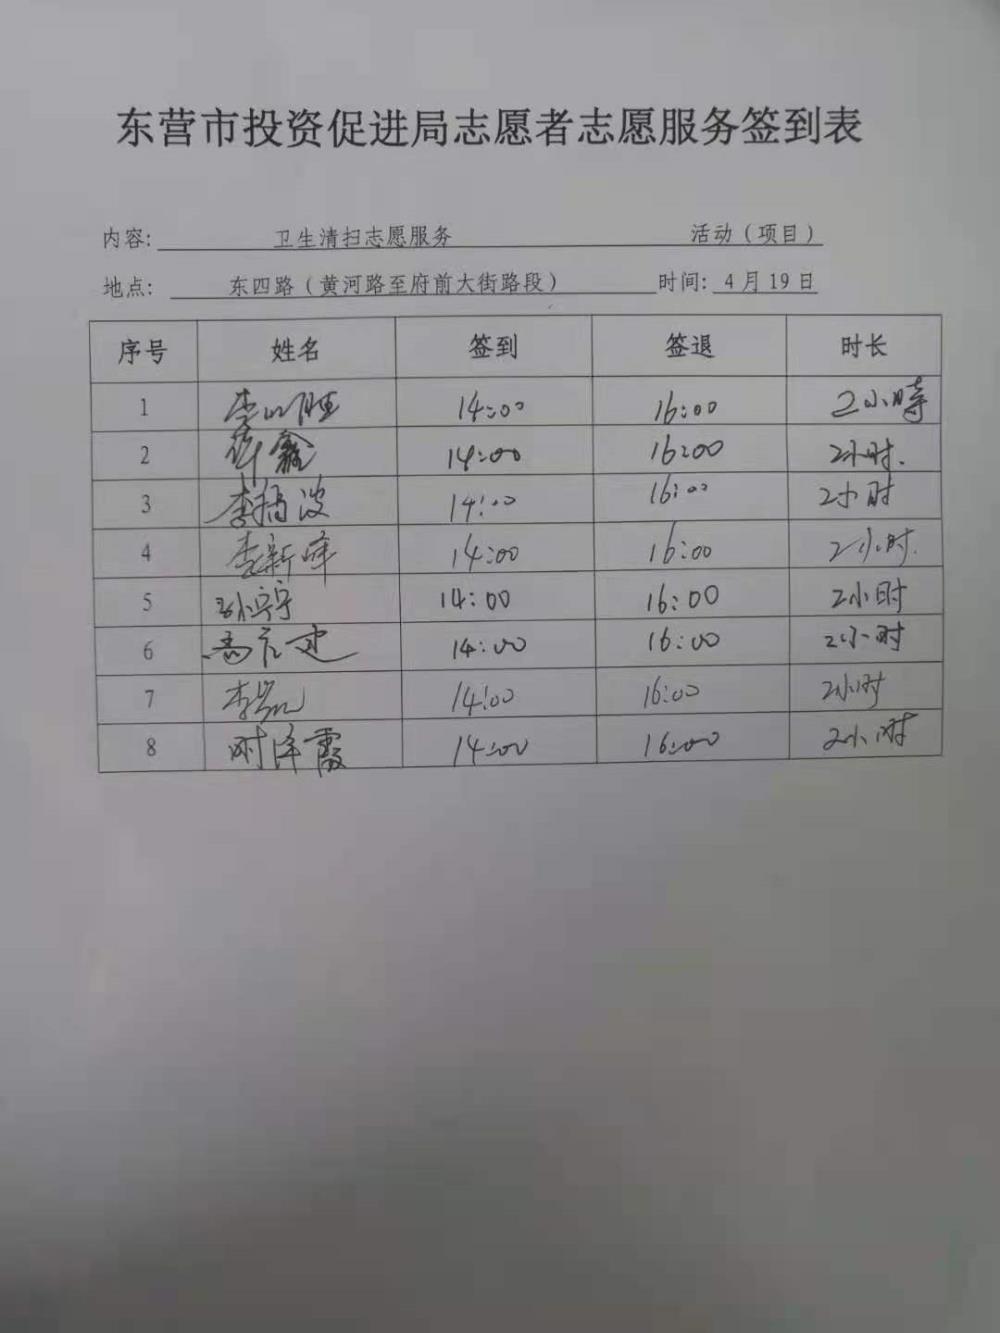 东营市投资促进局志愿者志愿服务签到表
内容: 卫生清扫志愿服务 活动（项目）
地点: 东四路（黄河路至府前大街路段） 时间: 4月19日
序号 姓名 签到 签退 时长
1 李 14:00 16:00 2小時
2 鑫 14:00 16:00 2小时.
3 李 波 14:00 16:00 2小时
4 李新峰 14:00 16:00 2小时.
5 孙宁宁 14:00 16:00 2小时
6 14:00 16:00 2小时
7 李 14:00 16:00 2小时
8 霞 14:00 16:00 2小时